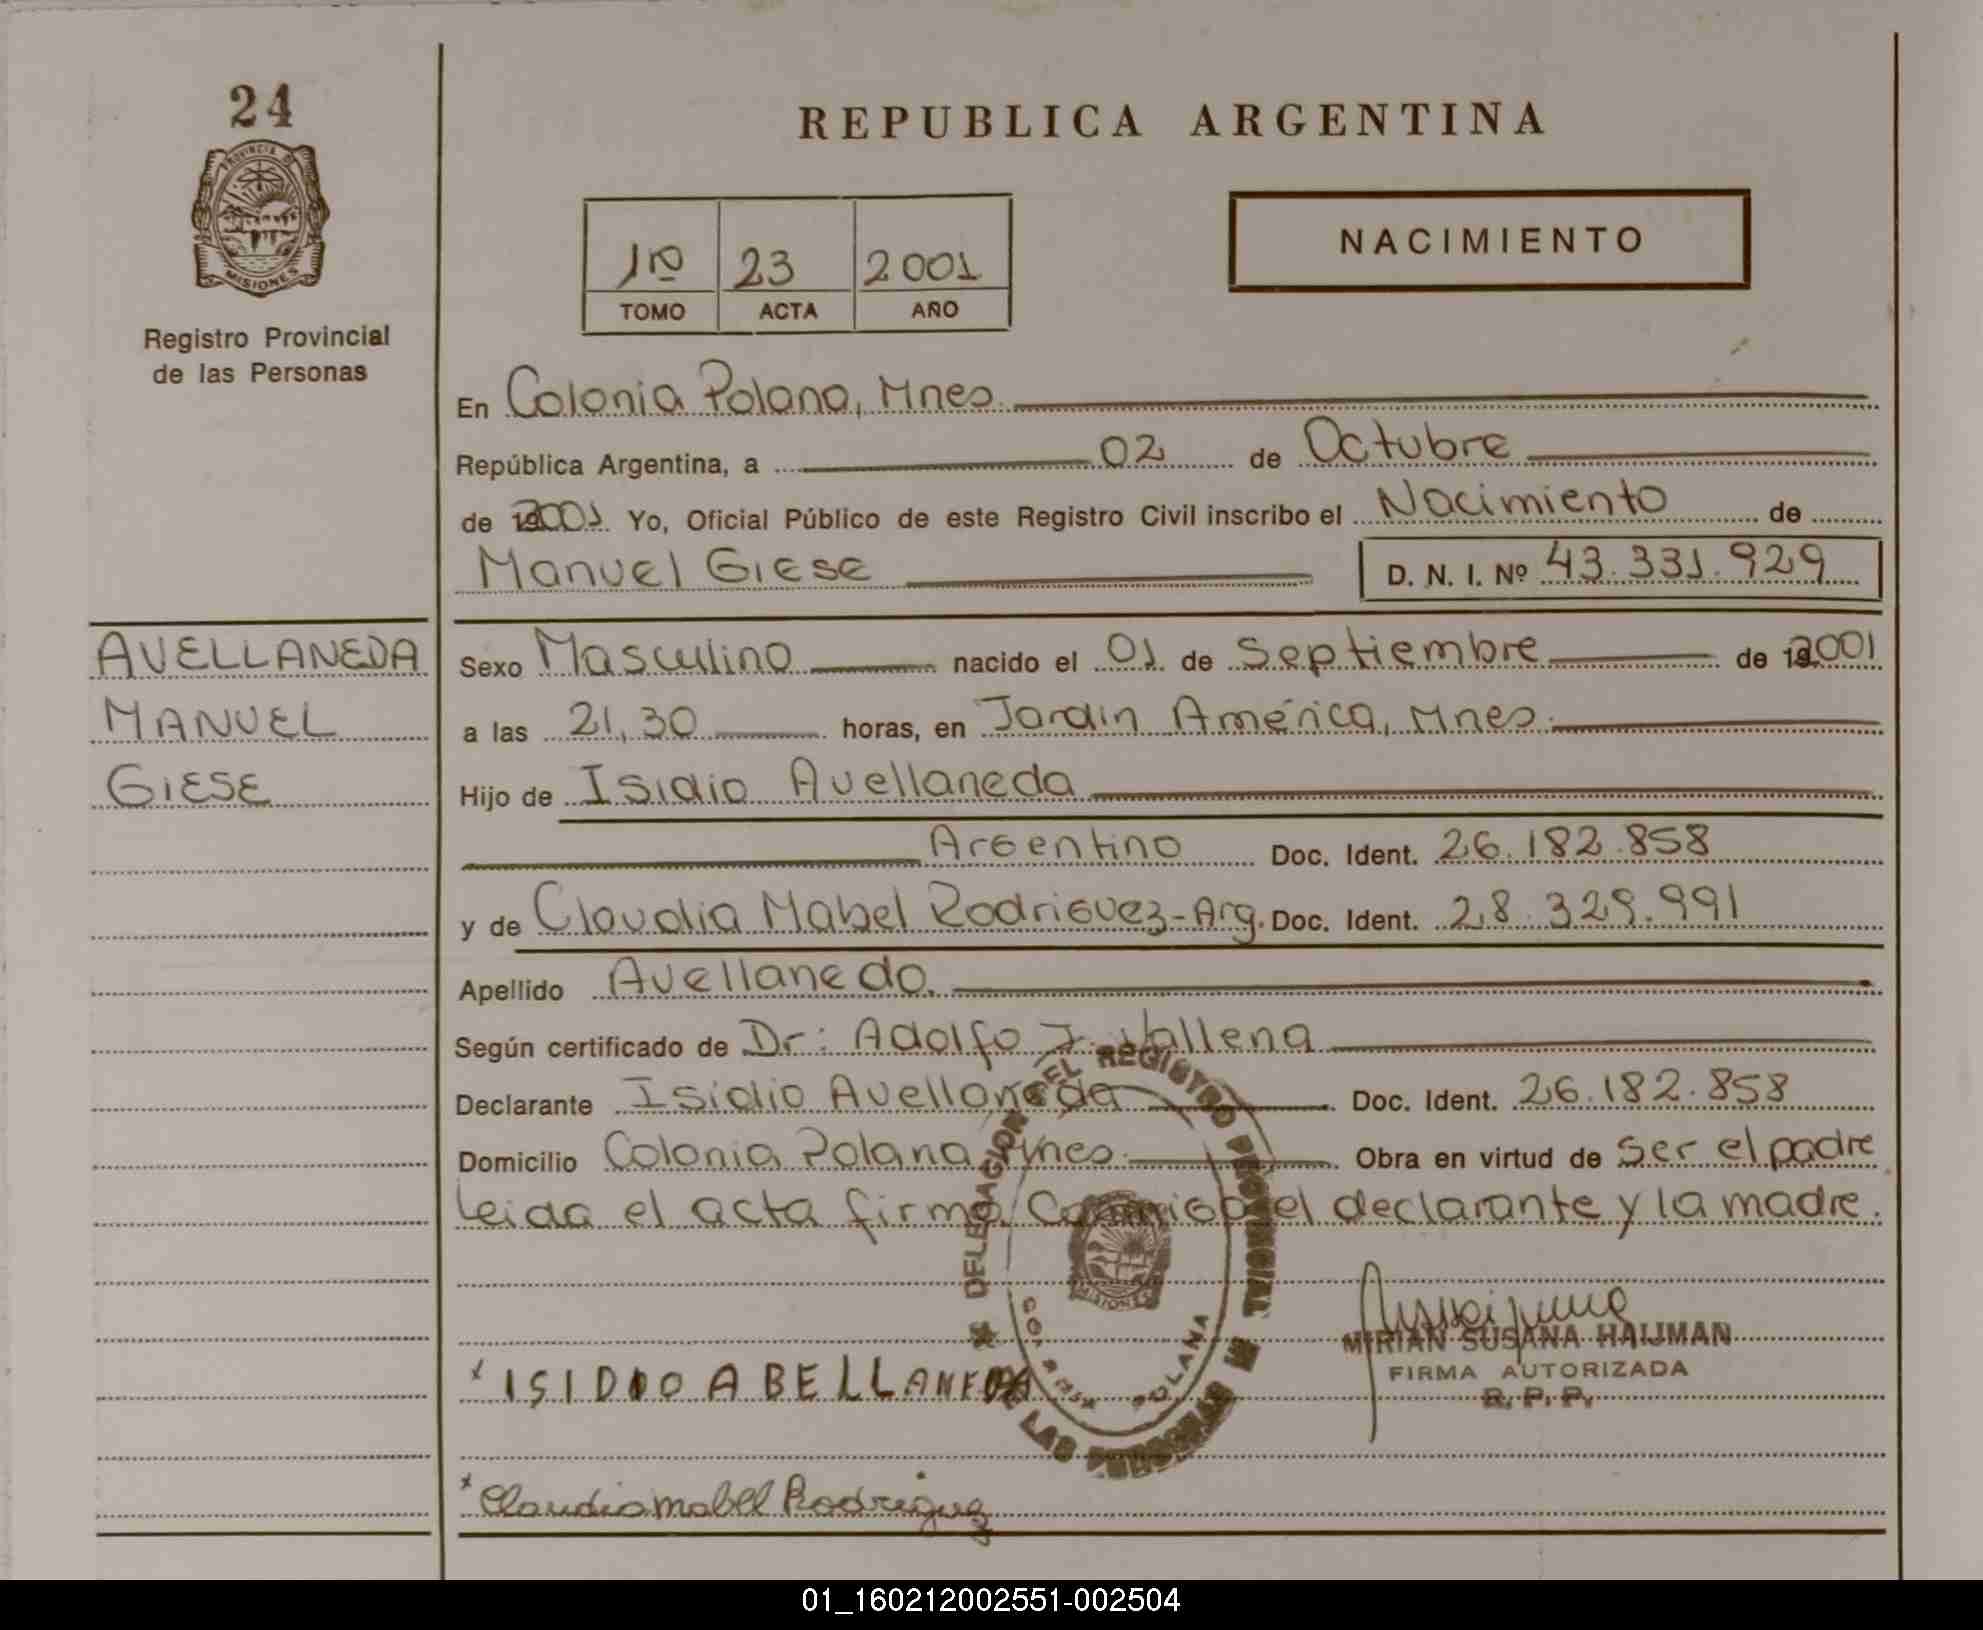 24
PROVINCIA DE
MISIONES
Registro Provincial
de las Personas
REPUBLICA ARGENTINA
1º 23 2001
TOMO ACTA AÑO
NACIMIENTO
En Colonia Polana, Mnes.
República Argentina, a 02 de Octubre
de 2001 Yo, Oficial Público de este Registro Civil inscribo el Nacimiento de
Manuel Giese D. N. I. Nº 43.331.929
AVELLANEDA
MANUEL
GIESE
Sexo Masculino nacido el 01 de Septiembre de 2001
a las 21,30 horas, en Jardin América, Mnes.
Hijo de Isidio Avellaneda
Argentino Doc. Ident. 26.182.858
y de Claudia Mabel Rodriguez-Arg. Doc. Ident. 28.329.991
Apellido Avellaneda.
Según certificado de Dr: Adolfo J. Vallena
Declarante Isidio Avellaneda Doc. Ident. 26.182.858
Domicilio Colonia Polana, Mnes. Obra en virtud de ser el padre
leida el acta firma Conmigo el declarante y la madre.
DELEGACION DEL REGISTRO PROVINCIAL DE LAS PERSONAS
MISIONES
POLANA
MIRIAN SUSANA HAIJMAN
FIRMA AUTORIZADA
R. P. P.
x ISIDIO ABELLANEDA
x Claudia mabel Rodriguez
01_160212002551-002504